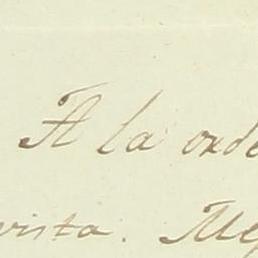 A la orde
vista. Mej